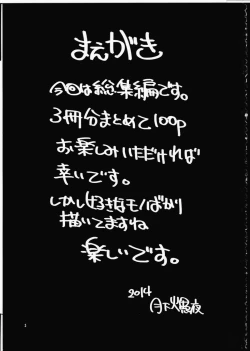 まえがき
今回は総集編です。
3冊分まとめて100p
お楽しみいただければ
幸いです。
しかし好きなモノばかり
描いてますね
楽しいです。
2014
月下火煜夜
1